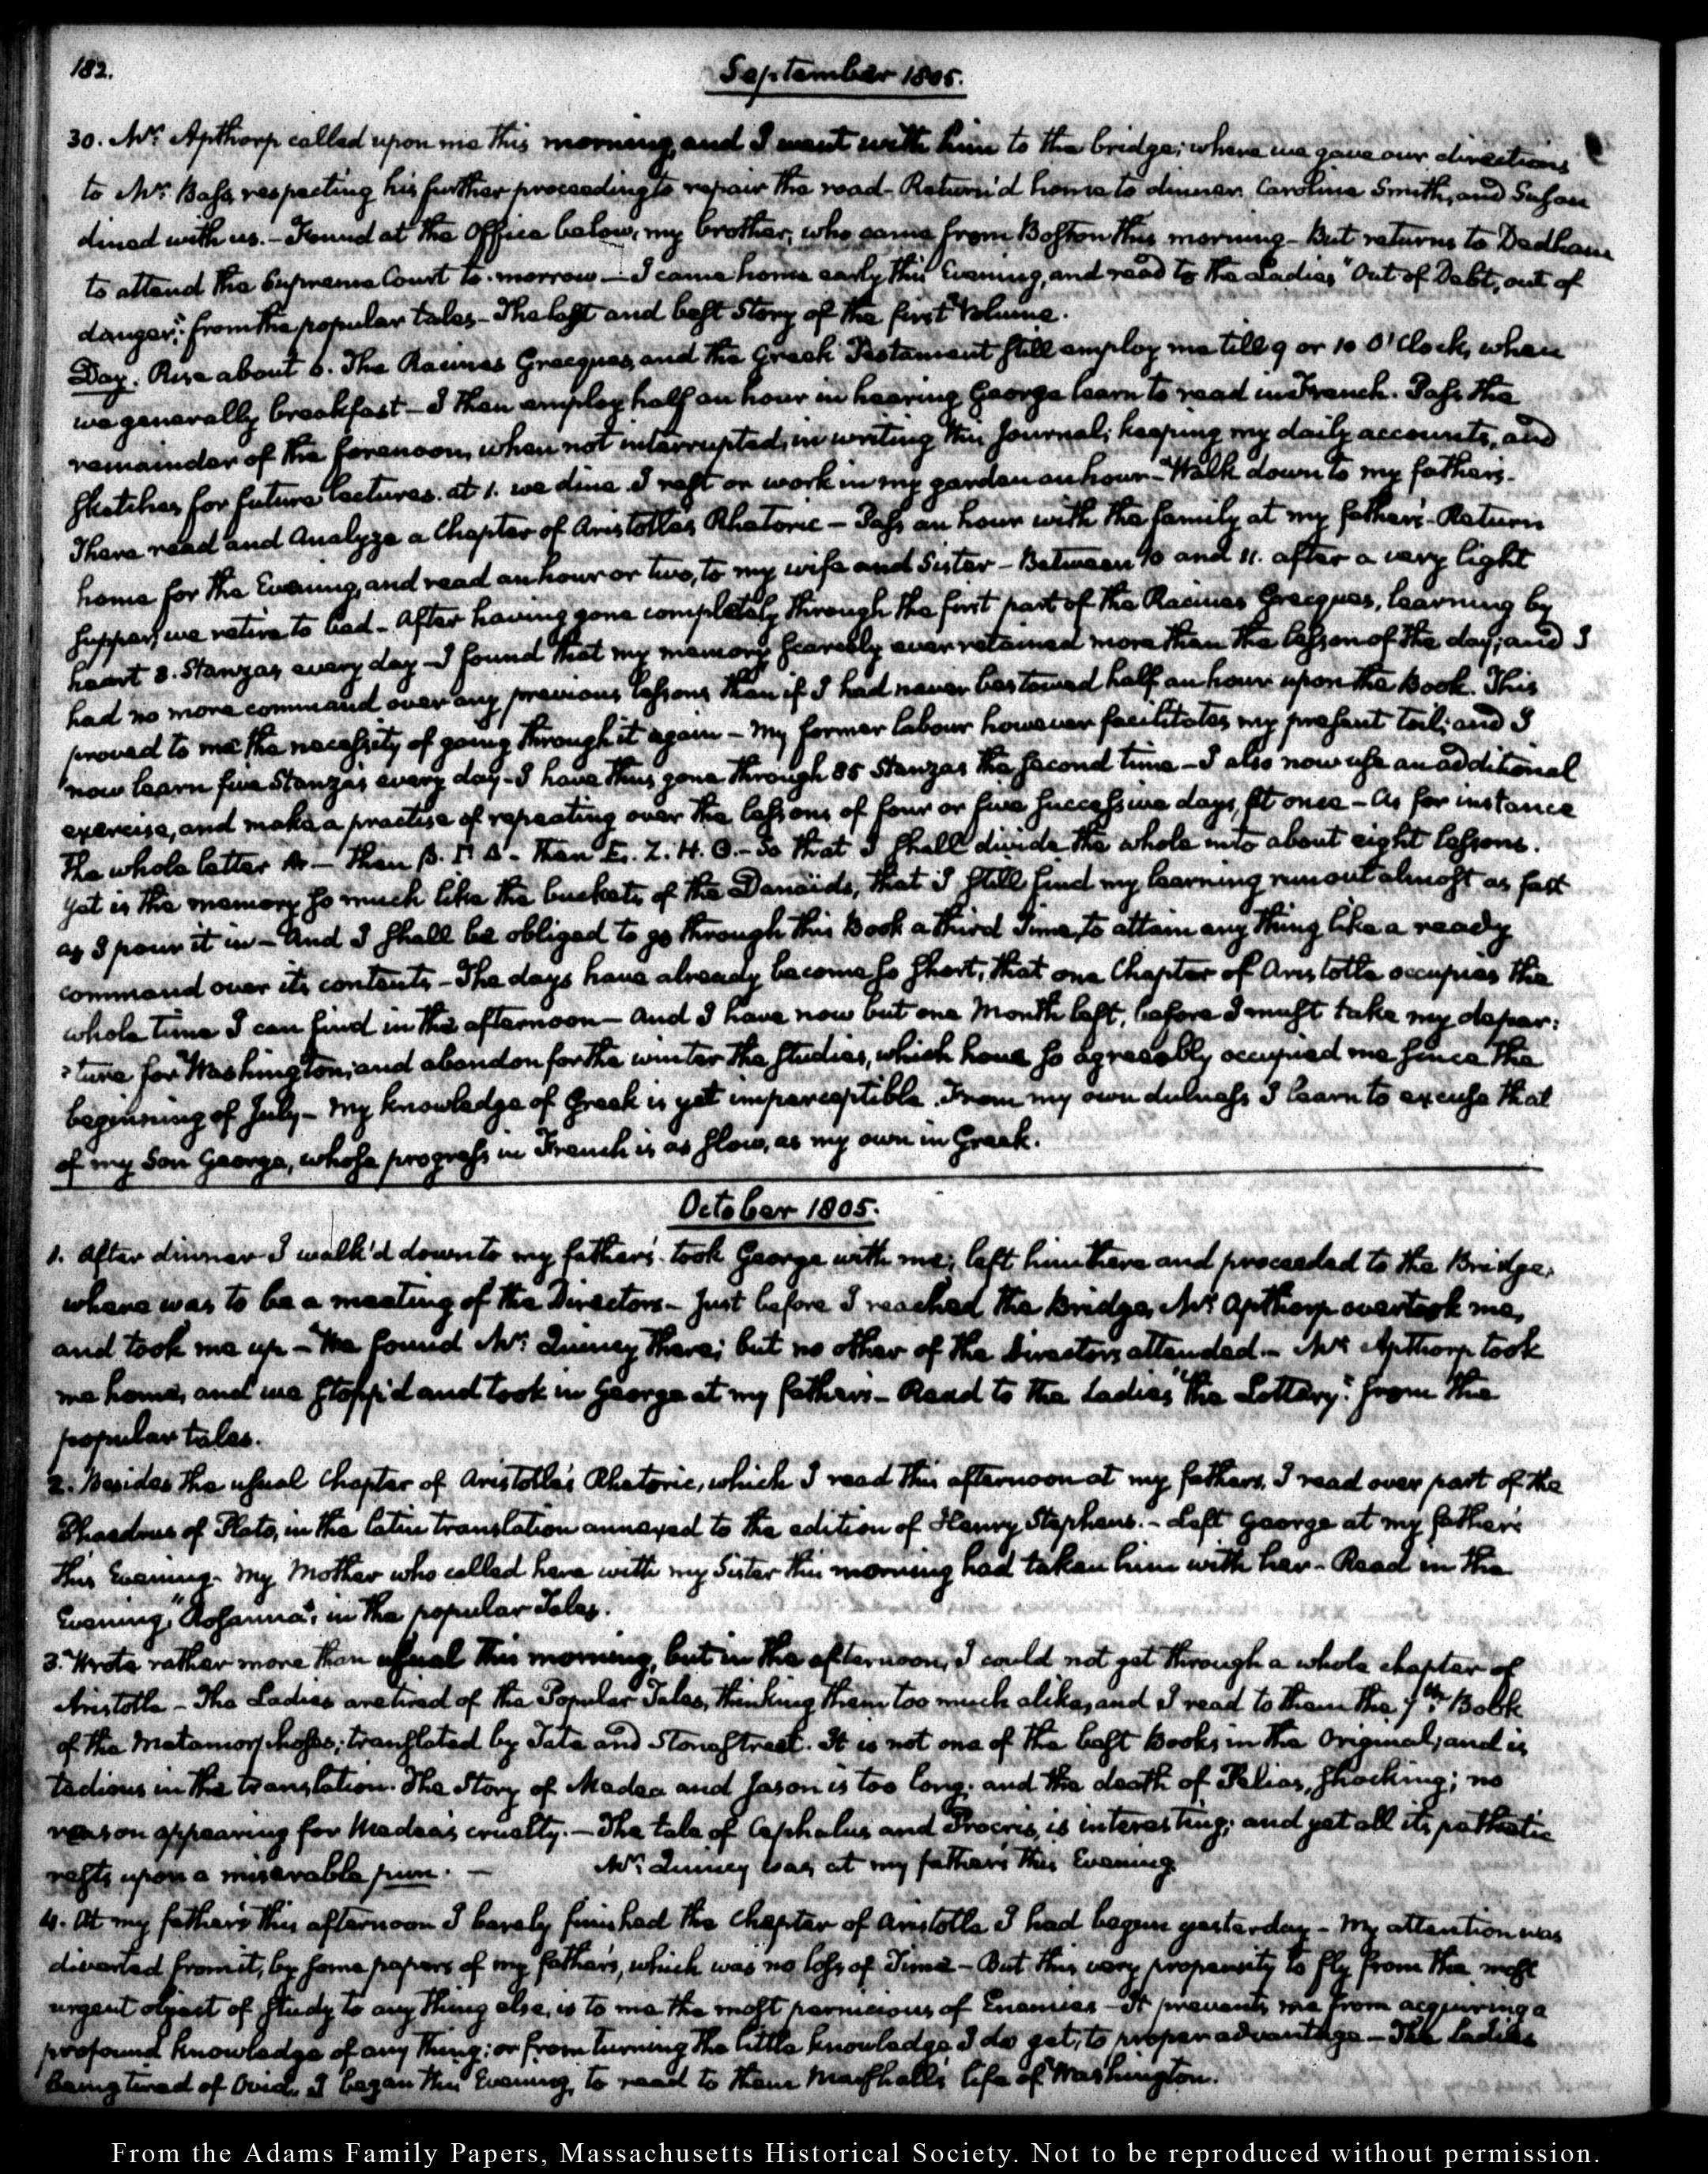 182.
September 1805.
30. Mr. Apthorp called upon me this morning, and I went with him to the bridge; where we gave our directions
to Mr. Bass, respecting his further proceedings to repair the road. Return'd home to dinner. Caroline Smith, and Susan
dined with us. — Found at the Office below, my brother, who came from Boston this morning — But returns to Dedham
to attend the Supreme Court to-morrow — I came home early this Evening, and read to the Ladies "Out of Debt, out of
danger": from the popular tales — The last and best Story of the first Volume.
Day. Rise about 6. The Racines Grecques, and the Greek Testament still employ me till 9 or 10 O'Clock, when
we generally breakfast — I then employ half an hour in hearing George learn to read in French. Pass the
remainder of the forenoon, when not interrupted, in writing this Journal; keeping my daily accounts, and
sketches for future lectures. at 1. we dine. I rest or work in my garden an hour — Walk down to my father's.
There read and Analyze a Chapter of Aristotle's Rhetoric — Pass an hour with the family at my father's — Return
home for the Evening, and read an hour or two, to my wife and Sister — Between 10 and 11. after a very light
supper, we retire to bed — After having gone completely through the first part of the Racines Grecques, learning by
heart 8. Stanzas every day — I found that my memory scarcely ever retained more than the lesson of the day; and I
had no more command over any previous lessons than if I had never bestowed half an hour upon the Book. This
proved to me the necessity of going through it again — My former labour however facilitates my present toil; and I
now learn five Stanza's every day — I have thus gone through 85 Stanzas the second time — I also now use an additional
exercise, and make a practise of repeating over the lessons of four or five successive days, at once — As for instance
the whole letter A — then B. Γ. Δ — then E. Z. H. Θ. — So that I shall divide the whole into about eight lessons.
Yet is the memory so much like the buckets of the Danaïds, that I still find my learning run out almost as fast
as I pour it in — And I shall be obliged to go through this Book a third Time, to attain any thing like a ready
command over its contents — The days have already become so short, that one Chapter of Aristotle occupies the
whole time I can find in the afternoon — And I have now but one Month left, before I must take my depar:
:ture for Washington; and abandon for the winter the studies, which have so agreeably occupied me since the
beginning of July — My knowledge of Greek is yet imperceptible. From my own dulness I learn to excuse that
of my Son George, whose progress in French is as slow, as my own in Greek.
October 1805.
1. After dinner I walk'd down to my father's. took George with me; left him there and proceeded to the Bridge,
where was to be a meeting of the Directors — Just before I reached the Bridge, Mr. Apthorp overtook me,
and took me up — We found Mr. Quincy there; but no other of the Directors attended — Mr. Apthorp took
me home, and we stopp'd and took in George at my father's — Read to the Ladies "the Lottery": from the
popular tales.
2. Besides the usual chapter of Aristotle's Rhetoric, which I read this afternoon at my fathers, I read over part of the
Phaedrus of Plato, in the latin translation annexed to the edition of Henry Stephens. — Left George at my father's
this Evening. My Mother who called here with my Sister this morning had taken him with her — Read in the
Evening, "Rosanna", in the popular Tales.
3. Wrote rather more than usual this morning, but in the afternoon, I could not get through a whole chapter of
Aristotle — The Ladies are tired of the Popular Tales, thinking them too much alike, and I read to them the 7th. Book
of the Metamorphoses; translated by Tate and Stonestreet. It is not one of the best Books in the Original, and is
tedious in the translation. The Story of Medea and Jason is too long; and the death of Pelias, shocking; no
reason appearing for Medea's cruelty. — The tale of Cephalus and Procris, is interesting; and yet all its pathetic
rests upon a miserable pun. — Mr. Quincy was at my father's this Evening.
4. At my father's this afternoon I barely finished the Chapter of Aristotle I had begun yesterday — My attention was
diverted from it, by some papers of my father's, which was no loss of Time — But this very propensity to fly from the most
urgent object of study to any thing else, is to me the most pernicious of Enemies — It prevents me from acquiring a
profound knowledge of any thing; or from turning the little knowledge I do get, to proper advantage — The Ladies
being tired of Ovid, I began this Evening, to read to them Marshall's life of Washington.
From the Adams Family Papers, Massachusetts Historical Society. Not to be reproduced without permission.